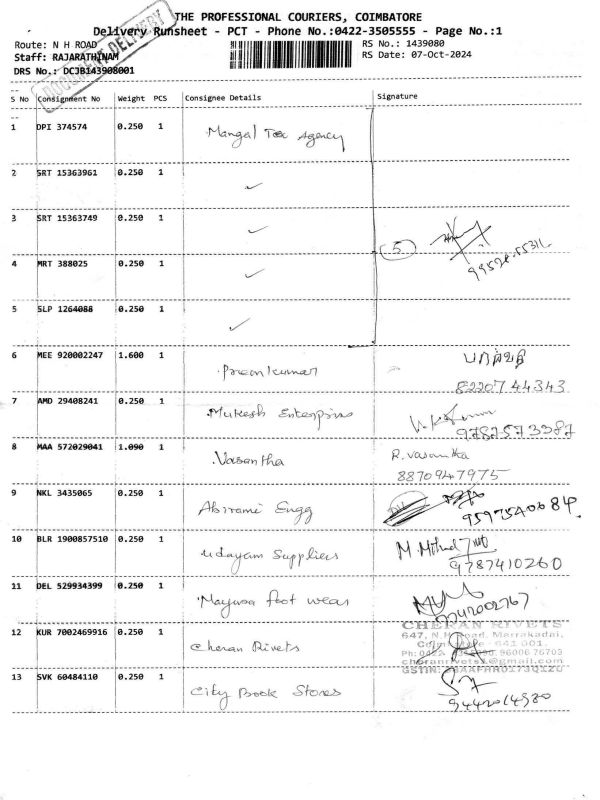 THE PROFESSIONAL COURIERS, COIMBATORE
Delivery Runsheet - PCT - Phone No.:0422-3505555 - Page No.:1
Route: N H ROAD
RS No.: 1439080
Staff: RAJARATHINAM
RS Date: 07-Oct-2024
DRS No.: DCJB143908001
DOCUMENT DELIVERY
S No Consignment No Weight PCS Consignee Details Signature
1 DPI 374574 0.250 1 Mangal Tex Agency
2 SRT 15363961 0.250 1 ✓
3 SRT 15363749 0.250 1 ✓
5
4 MRT 388025 0.250 1 ✓
5 SLP 1264088 0.250 1 ✓
6 MEE 920002247 1.600 1 Premkumar
8220744343
7 AMD 29408241 0.250 1 Mukesh Enterprises
9787573387
8 MAA 572029041 1.090 1 Vasantha R. Vasantha
8870947975
9 NKL 3435065 0.250 1 Abirami Engg
10 BLR 1900857510 0.250 1 Udayam Suppliers
9787410260
11 DEL 529934399 0.250 1 Mayura foot wear
12 KUR 7002469916 0.250 1 Cheran Rivets
CHERAN RIVETS
647, N.H. Road, Marrakadai,
Coimbatore - 641 001.
cheranrivets1@gmail.com
13 SVK 60484110 0.250 1 City Book Stores